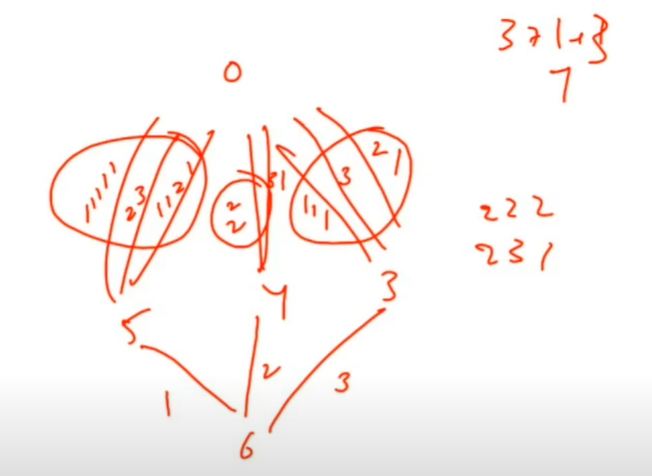 0
3 7 1 + 3
7
1 1 1 1 1 1
2 3
1 1 2 1
2
2
3 1
1 1 1
3
2 1
2 2 2
2 3 1
5
4
3
1
2
3
6